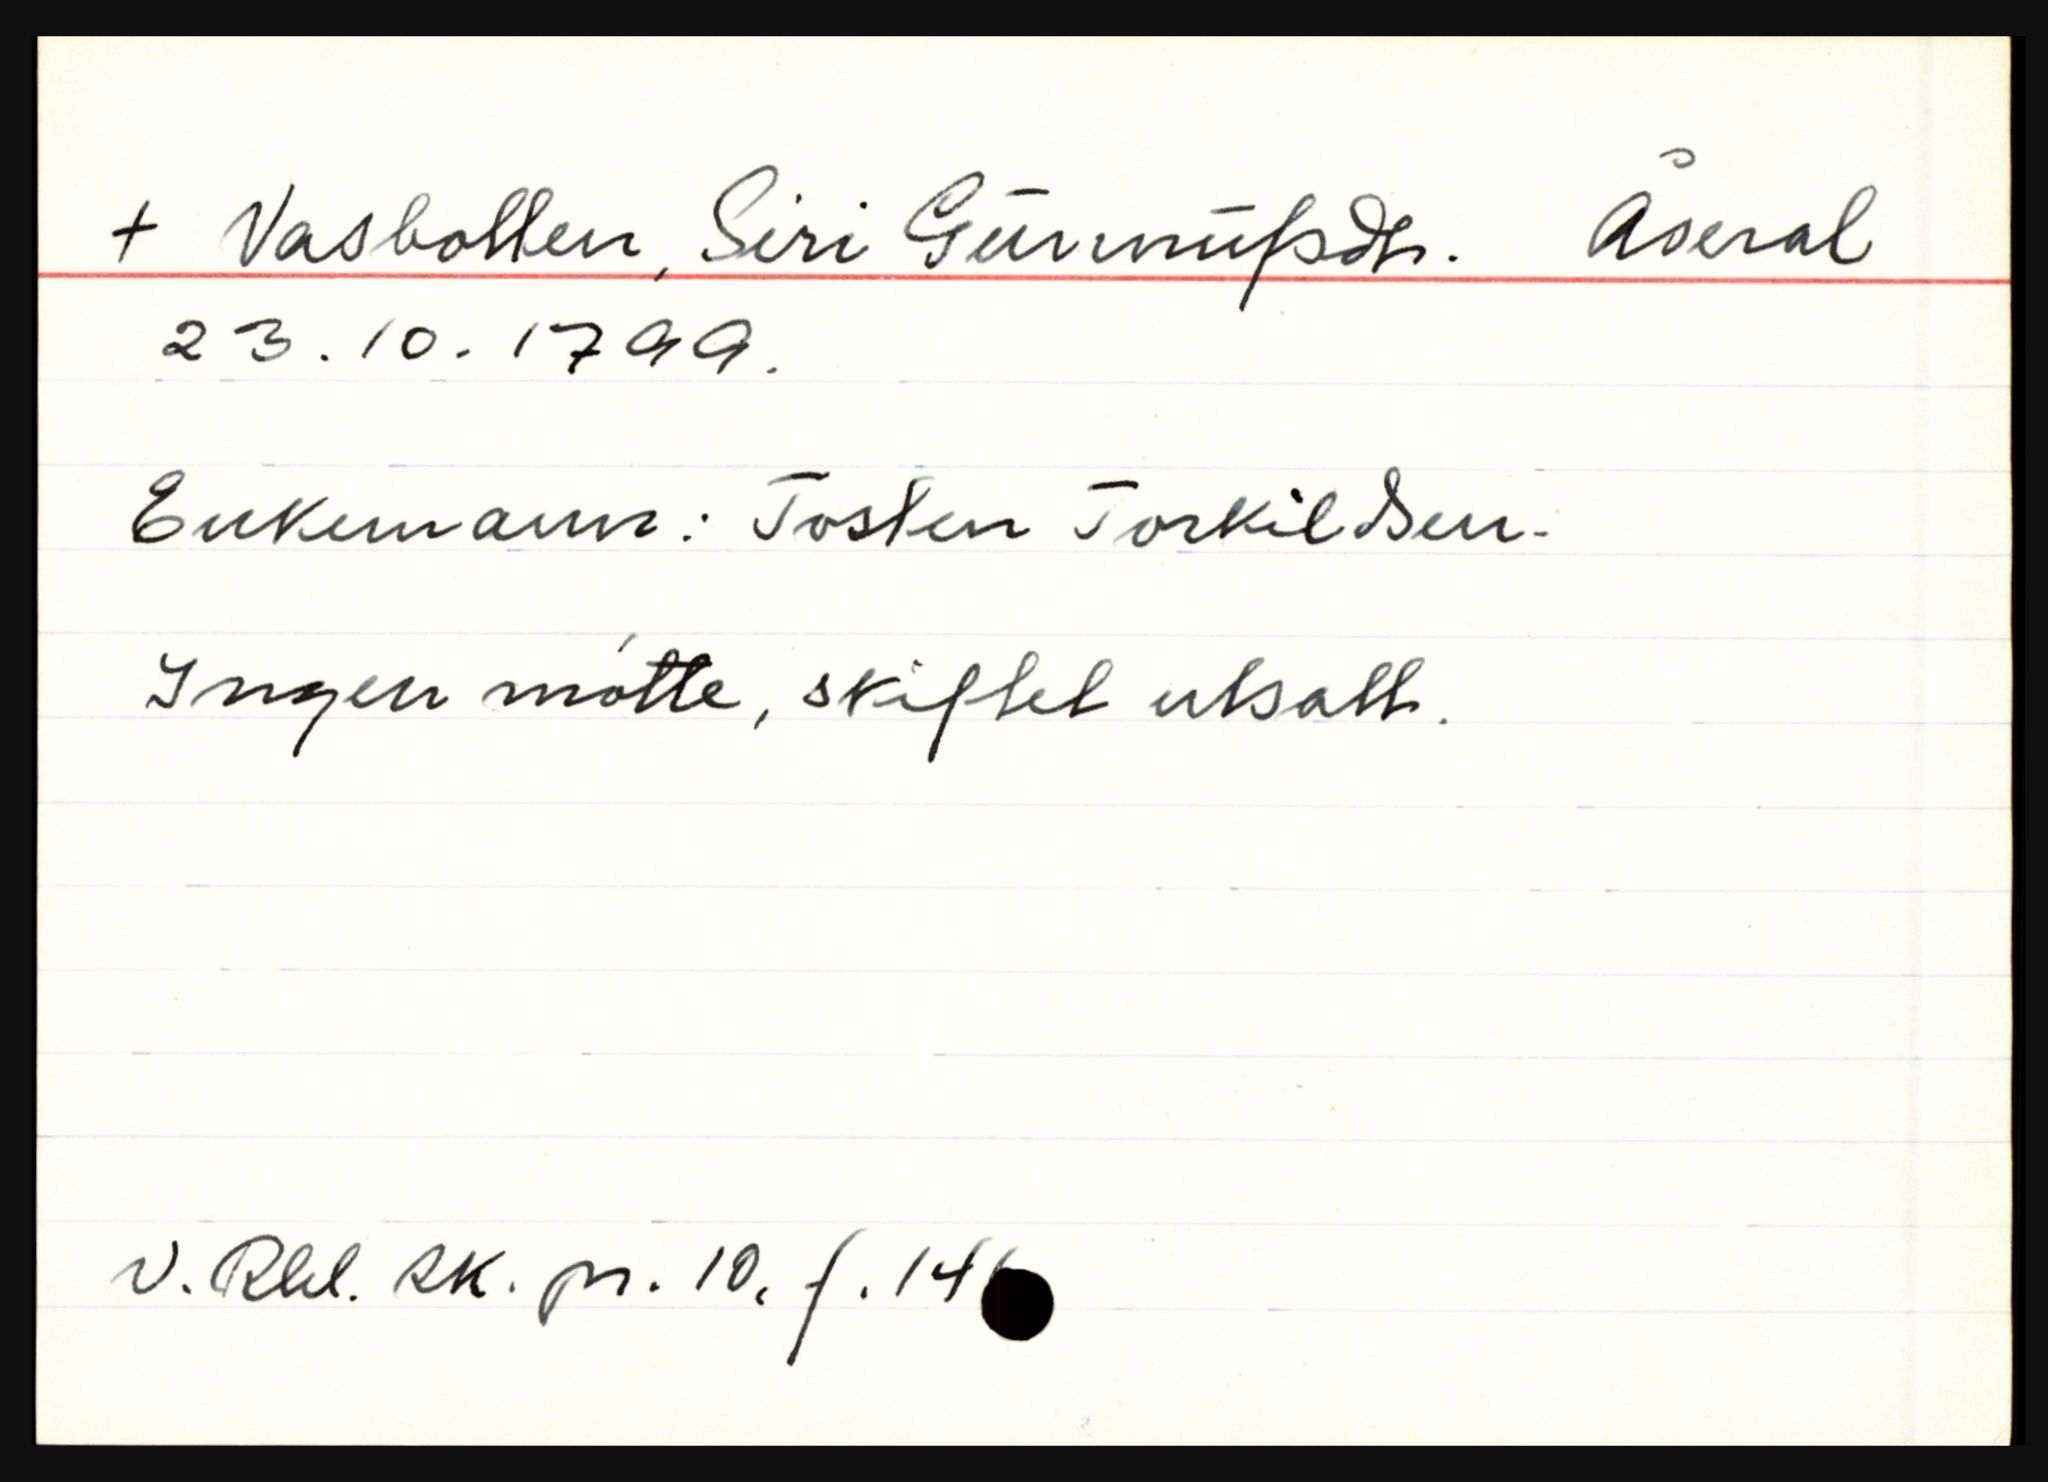 + Vasbotten, Siri Gunnufsdtr. Åseral
23.10.1799.
Enkemann: Tosten Torkildsen.
Ingen møtte, skiftet utsatt.
V. Rbl. sk. pr. 10. f. 146